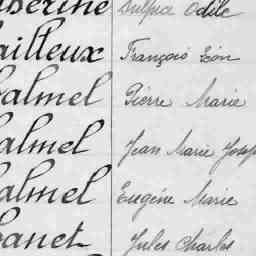 therine Sulpice Odile
ailleux François Léon
almel Pierre Marie
almel Jean Marie Joseph
almel Eugène Marie
anet Jules Charles